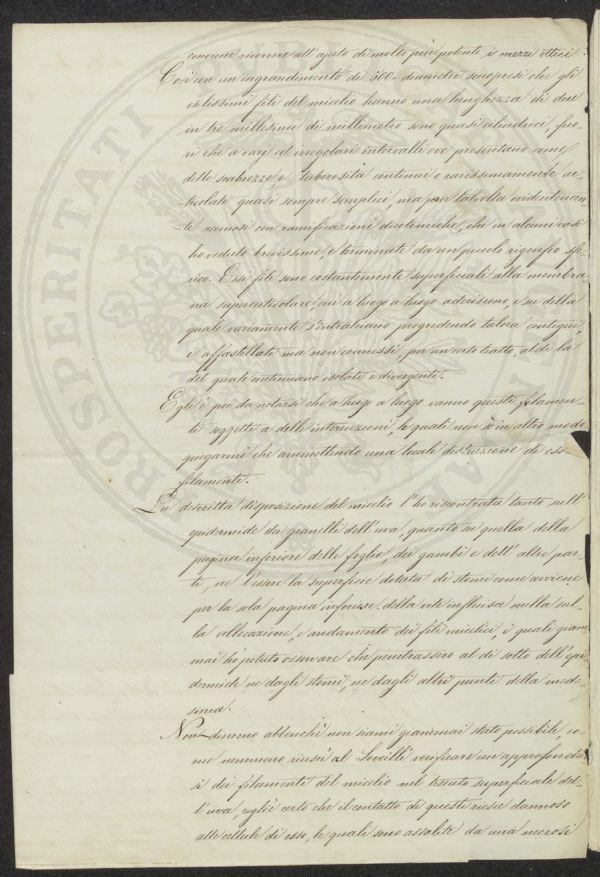 conviene ricorrere all'ajuto di molto più potenti i mezzi ottici
Così con un ingrandimento di 300 diametri si scoprì che gli
esilissimi fili del micelio hanno una lunghezza di due
in tre millesimi di millimetro sono quasi cilindrici, fuo-
ri che a varj ed irregolari intervalli ove presentano come
delle scabrezze e tuberosità continui o rarissimamente ar-
ticolati quasi sempre semplici, ma pur talvolta evidentemen-
te ramosi con ramificazioni dicotomiche, che in alcuni casi
ho veduto brevissime, e terminate da un piccolo rigonfio sfe-
rico. Essi fili sono costantemente superficiali alla membra-
na supercuticolare, cui a luogo a luogo aderiscono, e su della
quale variamente s'intralciano progredendo talora contigui,
e affastellati ma non connessi, per un certo tratto, al di là
del quale continuano isolati e divergenti.
Egli è poi da notarsi che a luogo a luogo vanno questi filamen-
ti soggetti a delle interruzioni, le quali non so in altro modo
spiegarmi che ammettendo una locale distruzione di essi
filamenti.
La descritta disposizione del micelio l'ho riscontrata tanto sull'
epidermide dei granelli dell'uva, quanto su quella della
pagina inferiore delle foglie, dei gambi e dell'altre par-
ti, ne l'essere la superficie dotata di stomi come avviene
per la sola pagina inferiore della vite influisce nulla sul-
la collocazione, e andamento dei fili micelici, i quali giam-
mai ho potuto osservare che penetrassero al di sotto dell'epi-
dermide ne dagli stomi, ne dagli altri punti della mede-
sima.
Non-dimeno abbenchè non siami giammai stato possibile, co-
me nemmeno riuscì al verificare un approfondar-
si dei filamenti del micelio nel tessuto superficiale del-
l'uva, egli è certo che il contatto di questi riesce dannoso
alle cellule di esso, le quali sono assalite da una necrosi